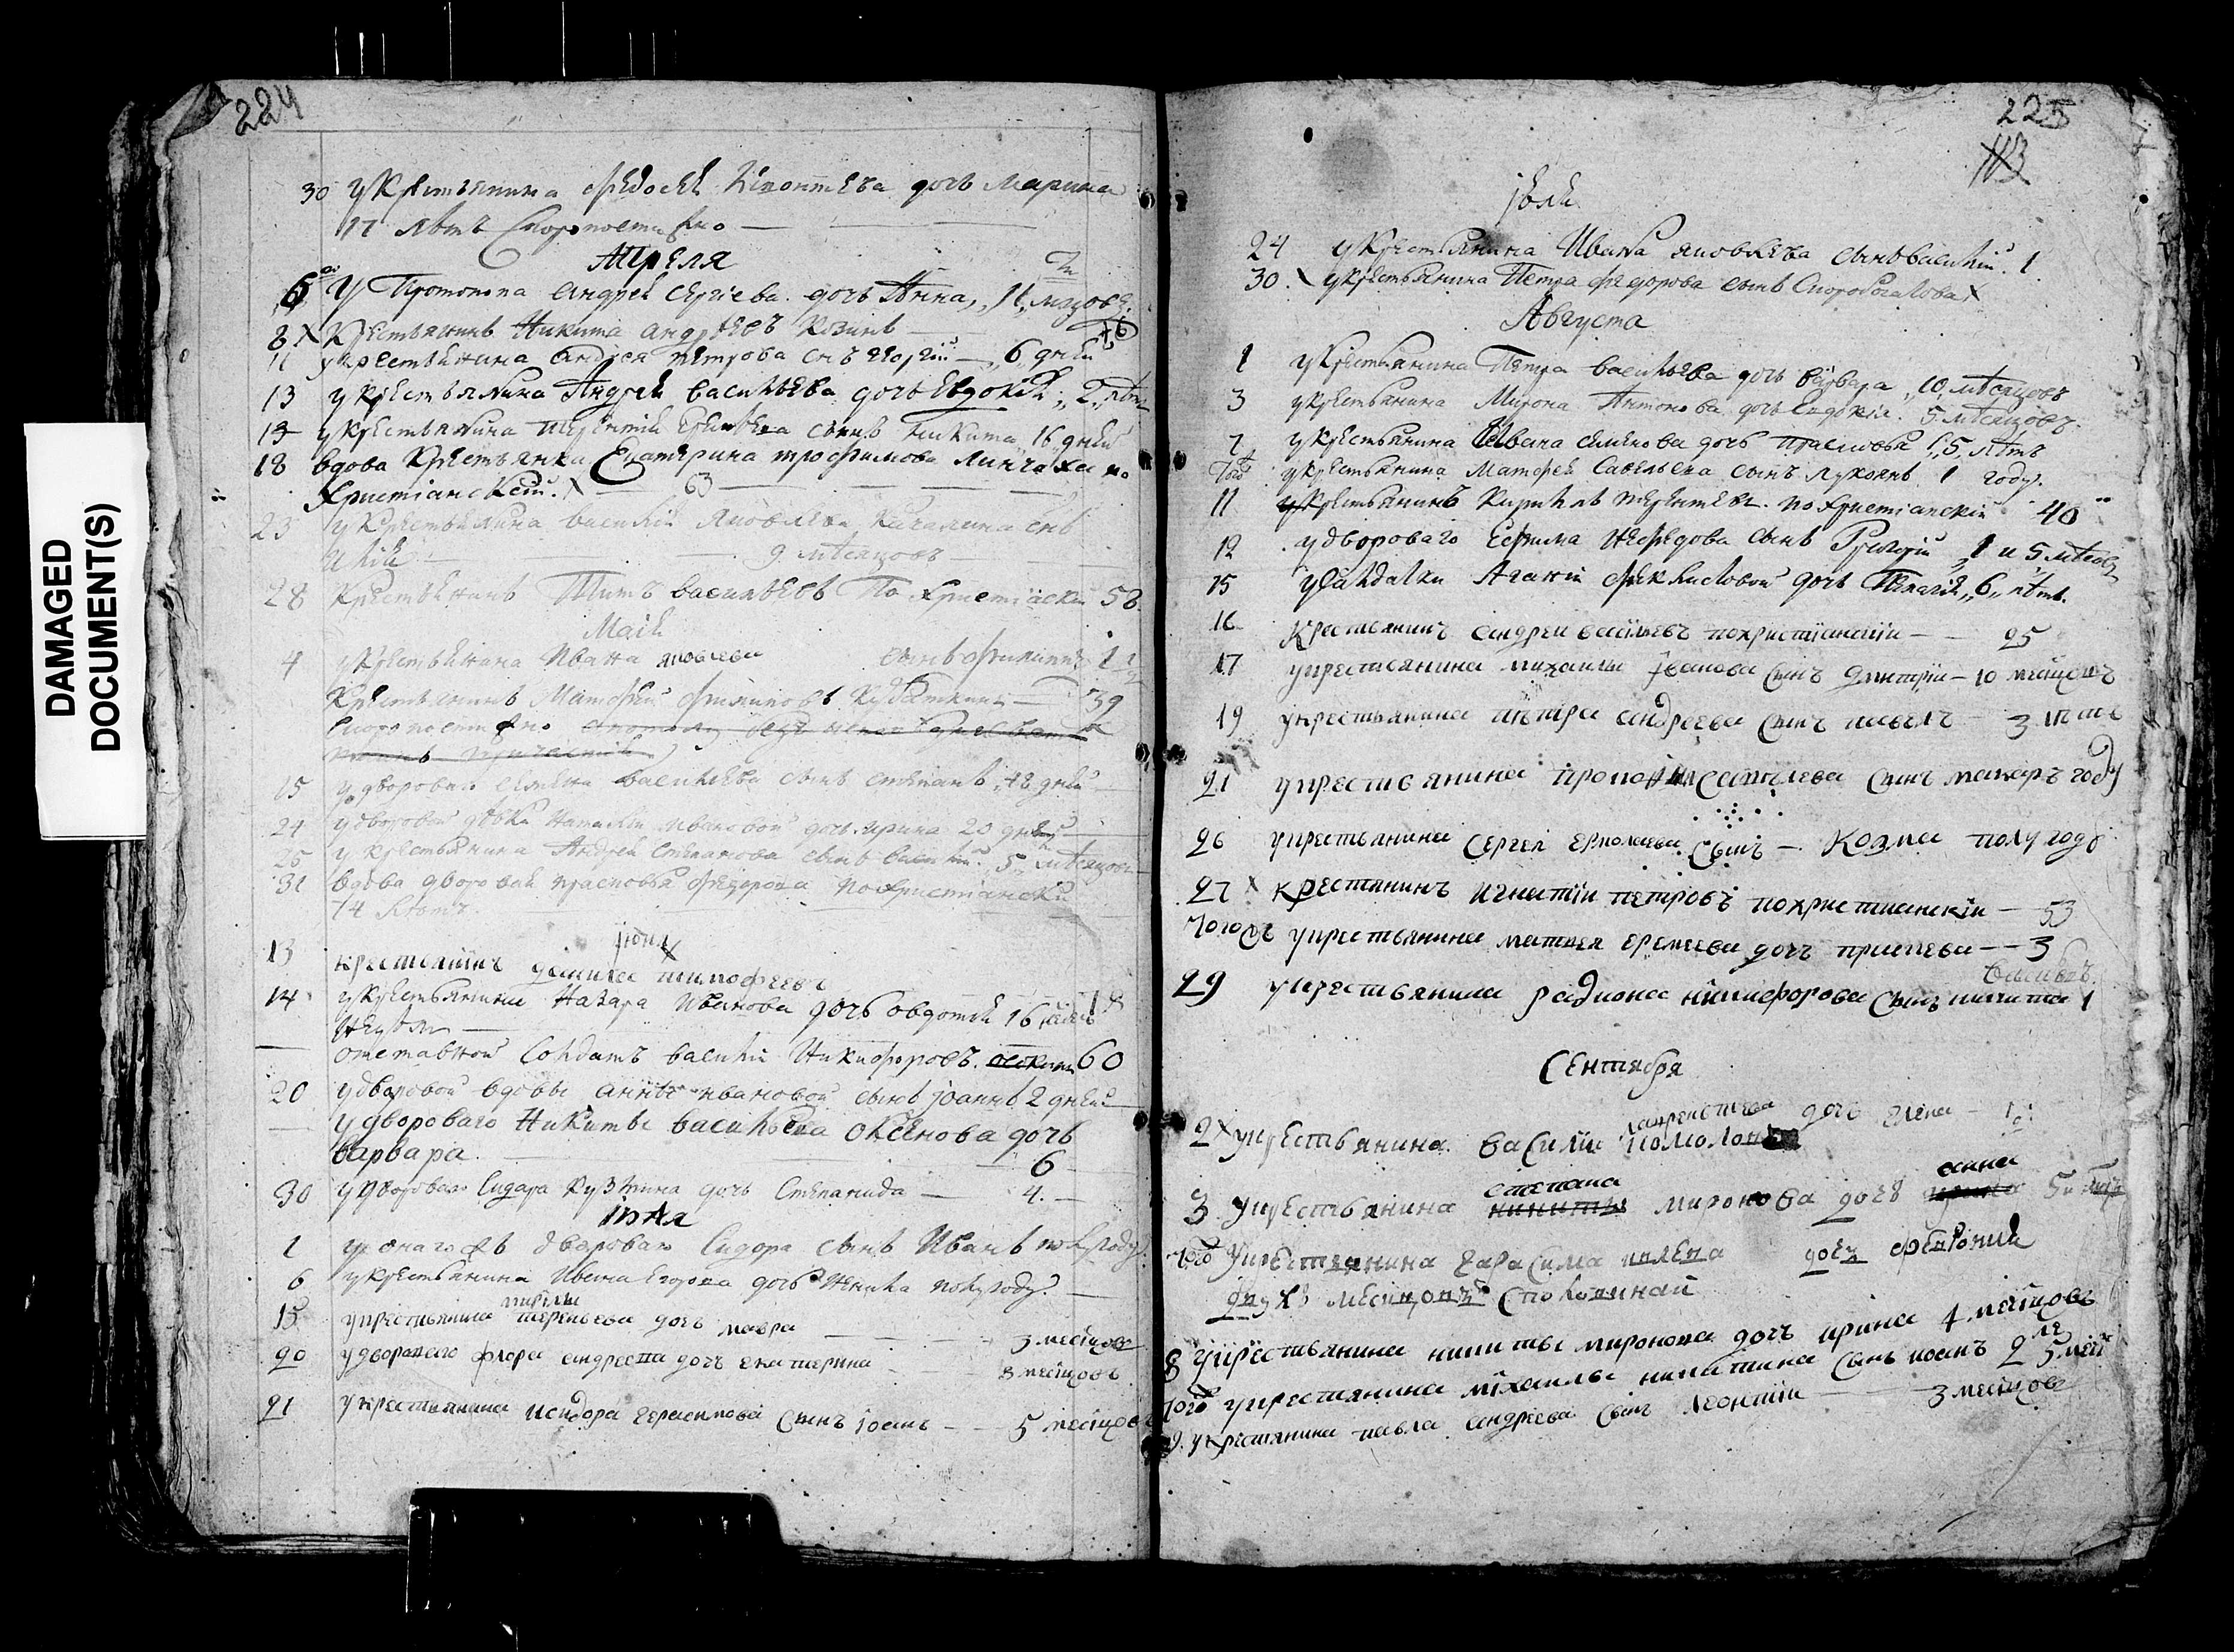 224
30 у крестьянина Федосея дочь Марина
17 летъ Скоропостижно
Апреля
6 У Протопопа Андрея Сергіева дочь Анна, 11 мцовъ
8 Х Крестьянинъ Никита Андреевъ Козинъ
11 у крестьянина Андрея Петрова снъ Георгій 6 дней
13 у крестьянина Андрея Васильева дочь Евдокія 2 лѣтъ
13 у крестьянина Терентія сынъ Никита 16 дней
18 вдова Крестьянка Екатерина Трофимова по
Христіанскій. Х 63
23 у крестьянина Василія Яковлева снъ
Илія 9 мѣсяцовъ
28 Крестьянинъ Титъ Васильевъ По Христіаски 58
Маія
4 у крестьянина Ивана Яковлева сынъ Филиппъ 1 1/2
Крестьянинъ Матфей Филиповъ 39
скоропостижно
15 у двороваго Семена Васильева сынъ Степанъ 12 дней
24 у дворовой дѣвки Наталіи Ивановой дочь Ирина 20 дней
25 у крестьянина Андрея Степанова сынъ Василій 5 мѣсяцовъ
31 вдова дворовая Прасковья Федорова по христіански
74 лѣтъ.
Іюня
13 крестьянинъ Данила Тимофеевъ
14 у крестьянина Назара Иванова дочь Овдотья 16
недѣль
отставной Солдатъ Василій Никифоровъ 60
20 у дворовой вдовы Анны Ивановой сынъ Іоаннъ 2 дней
у двороваго Никиты Васильева Оксенова дочь
Варвара 6
30 у двороваго Сидора Кузмина дочь Степанида 4.
Іюля
1 у онагожъ двороваго Сидора сынъ Иванъ полгоду
6 у крестьянина Ивана Егорова дочь полугоду.
15 у крестьянина Терентьева дочь Мавра 3 месяцовъ
20 у двороваго Флора Андреева дочь Екатерина 3 месяцовъ
21 у крестьянина Исидора Герасимова сынъ Іоанъ 5 месяцовъ
DAMAGED
DOCUMENT(S)
225
113
Іюля
24 у крестьянина Ивана Яковлева сынъ Василій. 1
30. Х у крестьянина Петра Федорова сынъ
Августа
1 у крестьянина Петра Васильева дочь Варвара 10 мѣсяцовъ
3 у крестьянина Мирона Антонова дочь Евдокія 5 мѣсяцовъ.
7 у крестьянина Ивана Семенова дочь Прасковья 5 лѣтъ
Того у крестьянина Матфея Савельева сынъ Лукьянъ 1 году.
11 крестьянинъ Кирилъ Терентьевъ по христіанскій 40
12 у двороваго Ефима Нефедова сынъ Григорій 1 и 5 мѣсяц
15 у салдатки Агафіи Феклистовой дочь Пелагія 6 лѣтъ.
16 Крестьянинъ Андрей Васильевъ по христианскіи 25
17 у крестьянина Михаилы Іванова сынъ Дмитріи 10 месяцовъ
19 у крестьянина Петра Андреева сынъ Павелъ 3 летъ
21 у крестьянина Савельева сынъ Макаръ году
26 у крестьянина Сергея Ермолаева сынъ Козма полугоду
27 Х крестьянинъ Игнатіи Петровъ по христианскіи 53
Тогожъ у крестьянина Матвея Еремеева дочь 3
29 у крестьянина Радиона Никифорова сынъ Никита 1
Сентября
2 Х у крестьянина Василия Лаврентьева дочь Елена 1
3 у крестьянина Степана Миронова дочь Анна 5
Того у крестьянина Гарасима дочь Феврония
двухъ месяцовъ
8 у крестьянина Никиты Миронова дочь Ирина 4 месяцовъ
Того у крестянина Михаилы Никитина сынъ Иоанъ 2 ле 5 мей
9. у крестянина Павла Андреева сынъ Леонтіи 3 месяцовъ